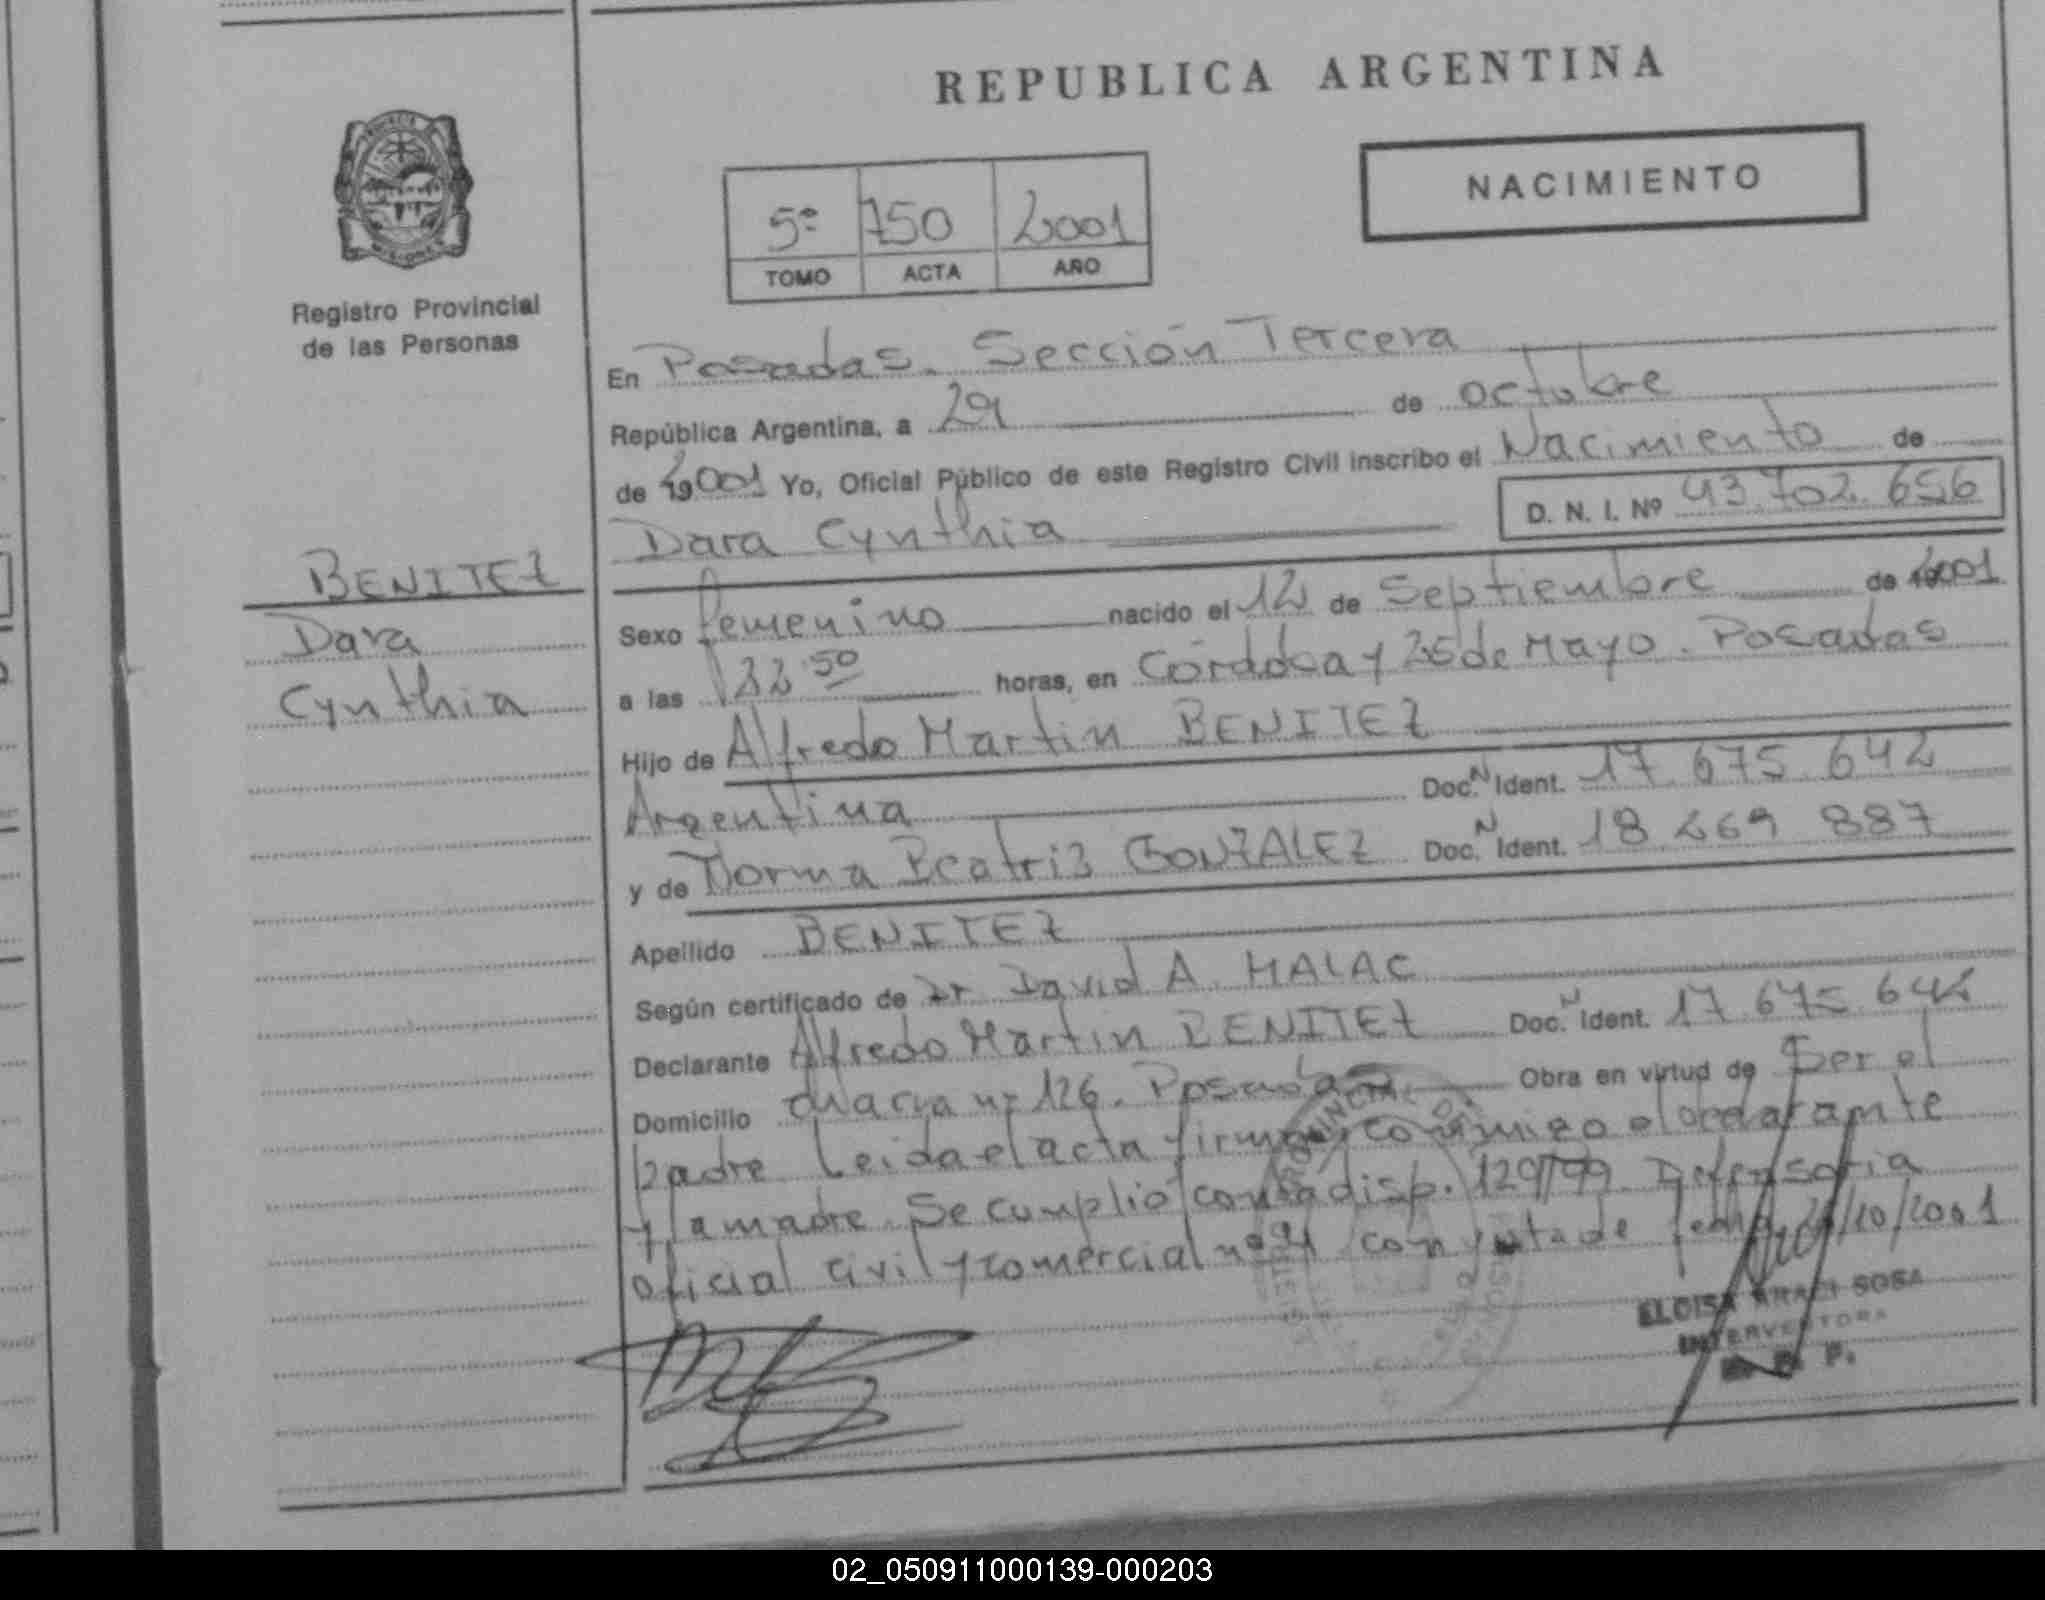 REPUBLICA ARGENTINA
NACIMIENTO
5º 750 2001
TOMO ACTA AÑO
Registro Provincial
de las Personas
En Posadas. Sección Tercera
República Argentina, a 29 de octubre
de 2001 Yo, Oficial Público de este Registro Civil inscribo el Nacimiento de
D. N. I. Nº 43.702.656
Dara Cynthia
BENITEZ
Dara
Cynthia
Sexo femenino nacido el 12 de Septiembre de 2001
a las 22 50 horas, en Córdoba y 25 de Mayo. Posadas
Hijo de Alfredo Martin BENITEZ
Argentina Doc. N Ident. 17 675 642
y de Norma Beatriz GONZALEZ Doc. N Ident. 18 269 887
Apellido BENITEZ
Según certificado de Dr David A. MALAC
Declarante Alfredo Martin BENITEZ Doc. N Ident. 17 675 642
Domicilio nº 126. Posadas Obra en virtud de Ser el
padre Leida el acta firma conmigo el declarante
y la madre. Se cumplió con la disp. 129/99. Defensoria
oficial civil y comercial nº con de fecha /10/2001
ELOISA ARACI SOSA
INTERVENTORA
R. P. P.
02_050911000139-000203